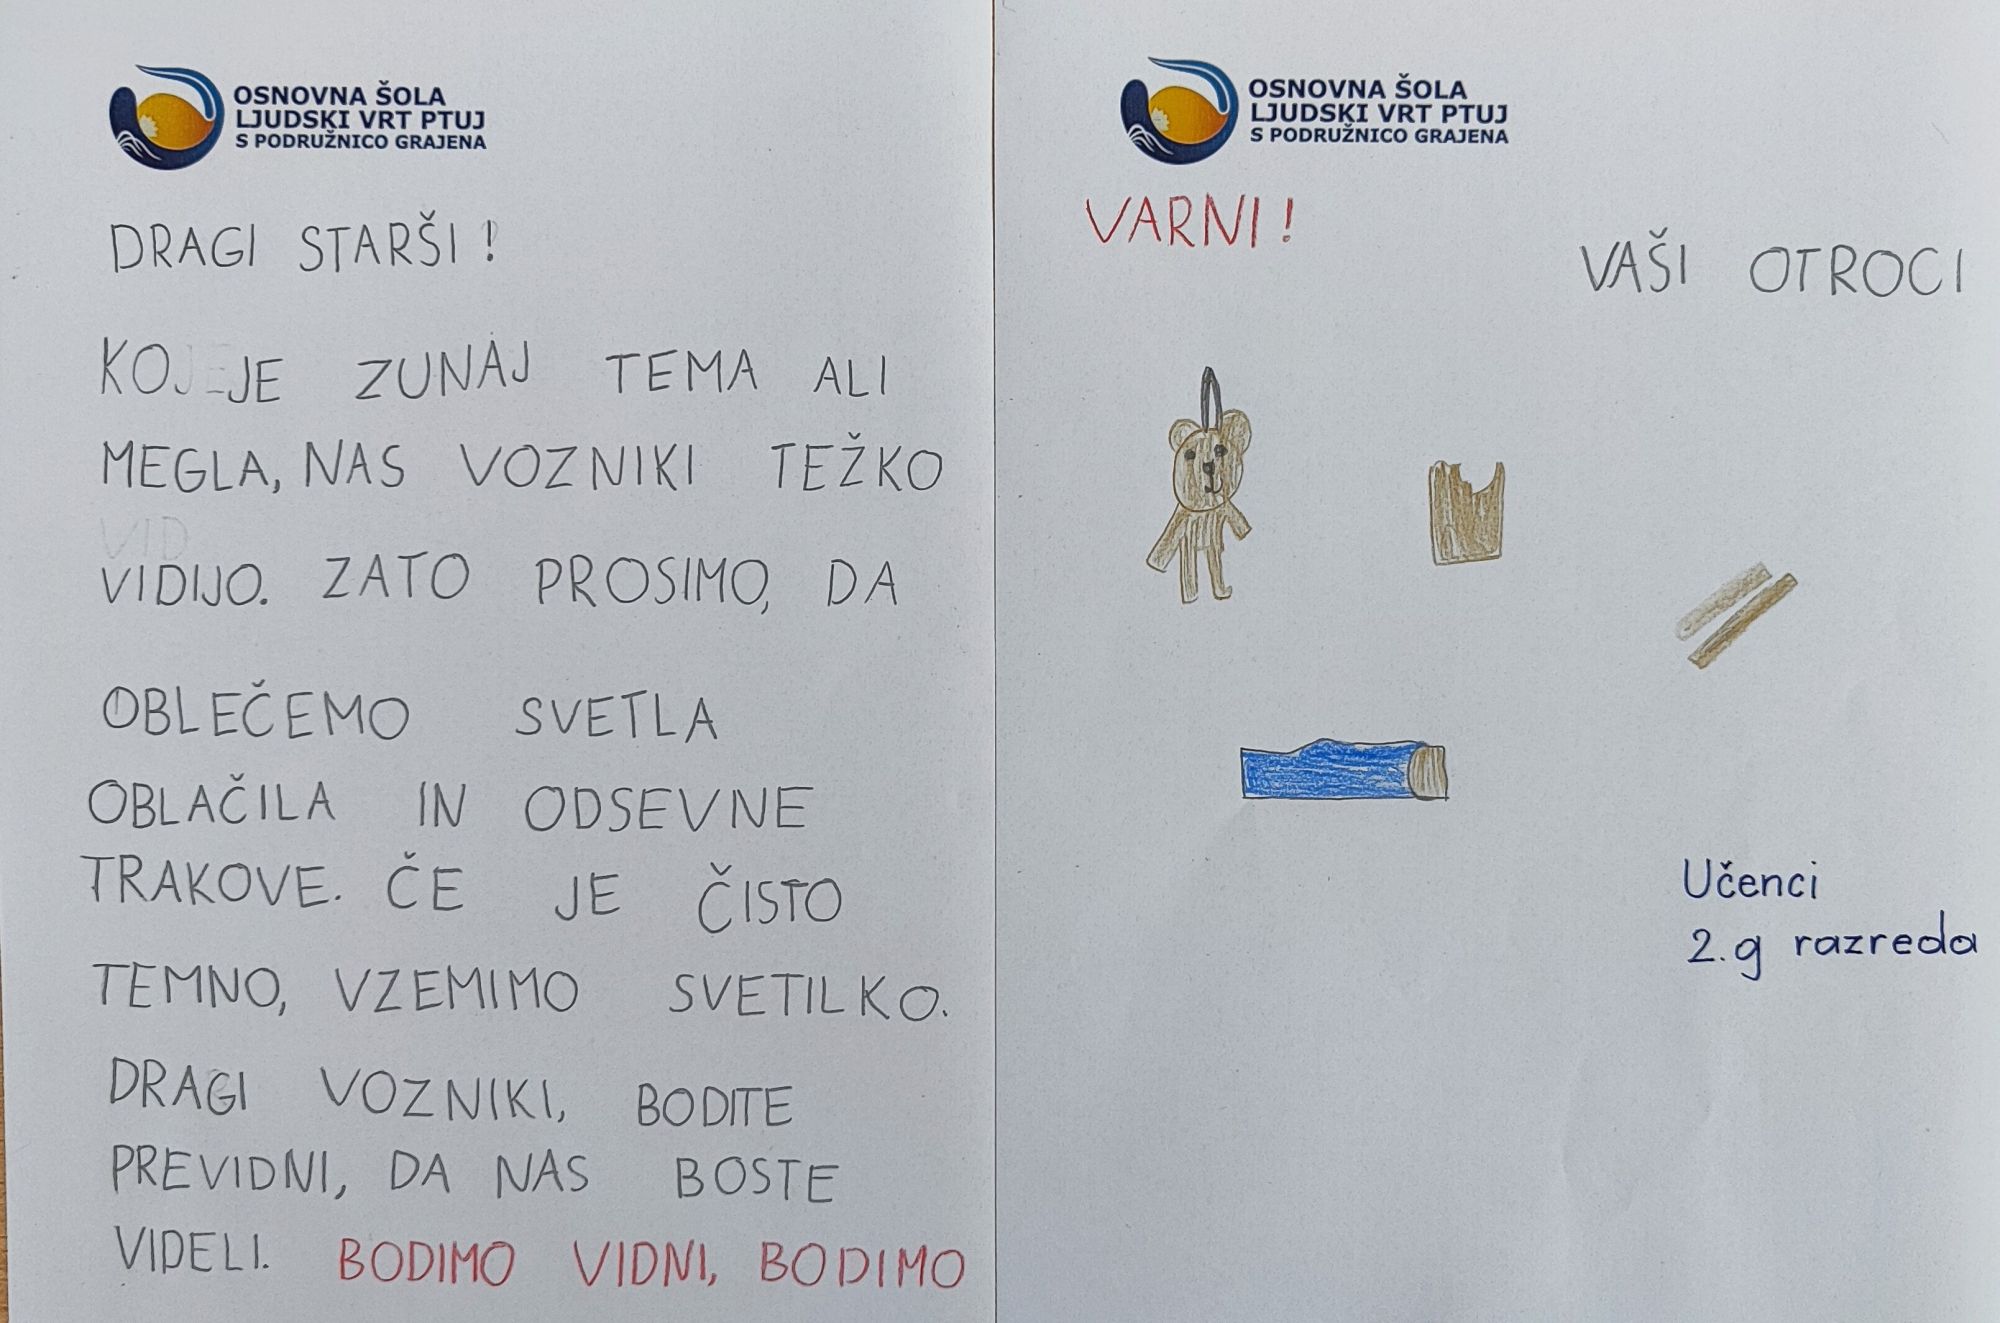 OSNOVNA ŠOLA
LJUDSKI VRT PTUJ
S PODRUŽNICO GRAJENA
DRAGI STARŠI!
KO JE ZUNAJ TEMA ALI
MEGLA, NAS VOZNIKI TEŽKO
VIDIJO. ZATO PROSIMO, DA
OBLEČEMO SVETLA
OBLAČILA IN ODSEVNE
TRAKOVE. ČE JE ČISTO
TEMNO, VZEMIMO SVETILKO.
DRAGI VOZNIKI, BODITE
PREVIDNI, DA NAS BOSTE
VIDELI. BODIMO VIDNI, BODIMO
OSNOVNA ŠOLA
LJUDSKI VRT PTUJ
S PODRUŽNICO GRAJENA
VARNI!
VAŠI OTROCI
Učenci
2.g razreda